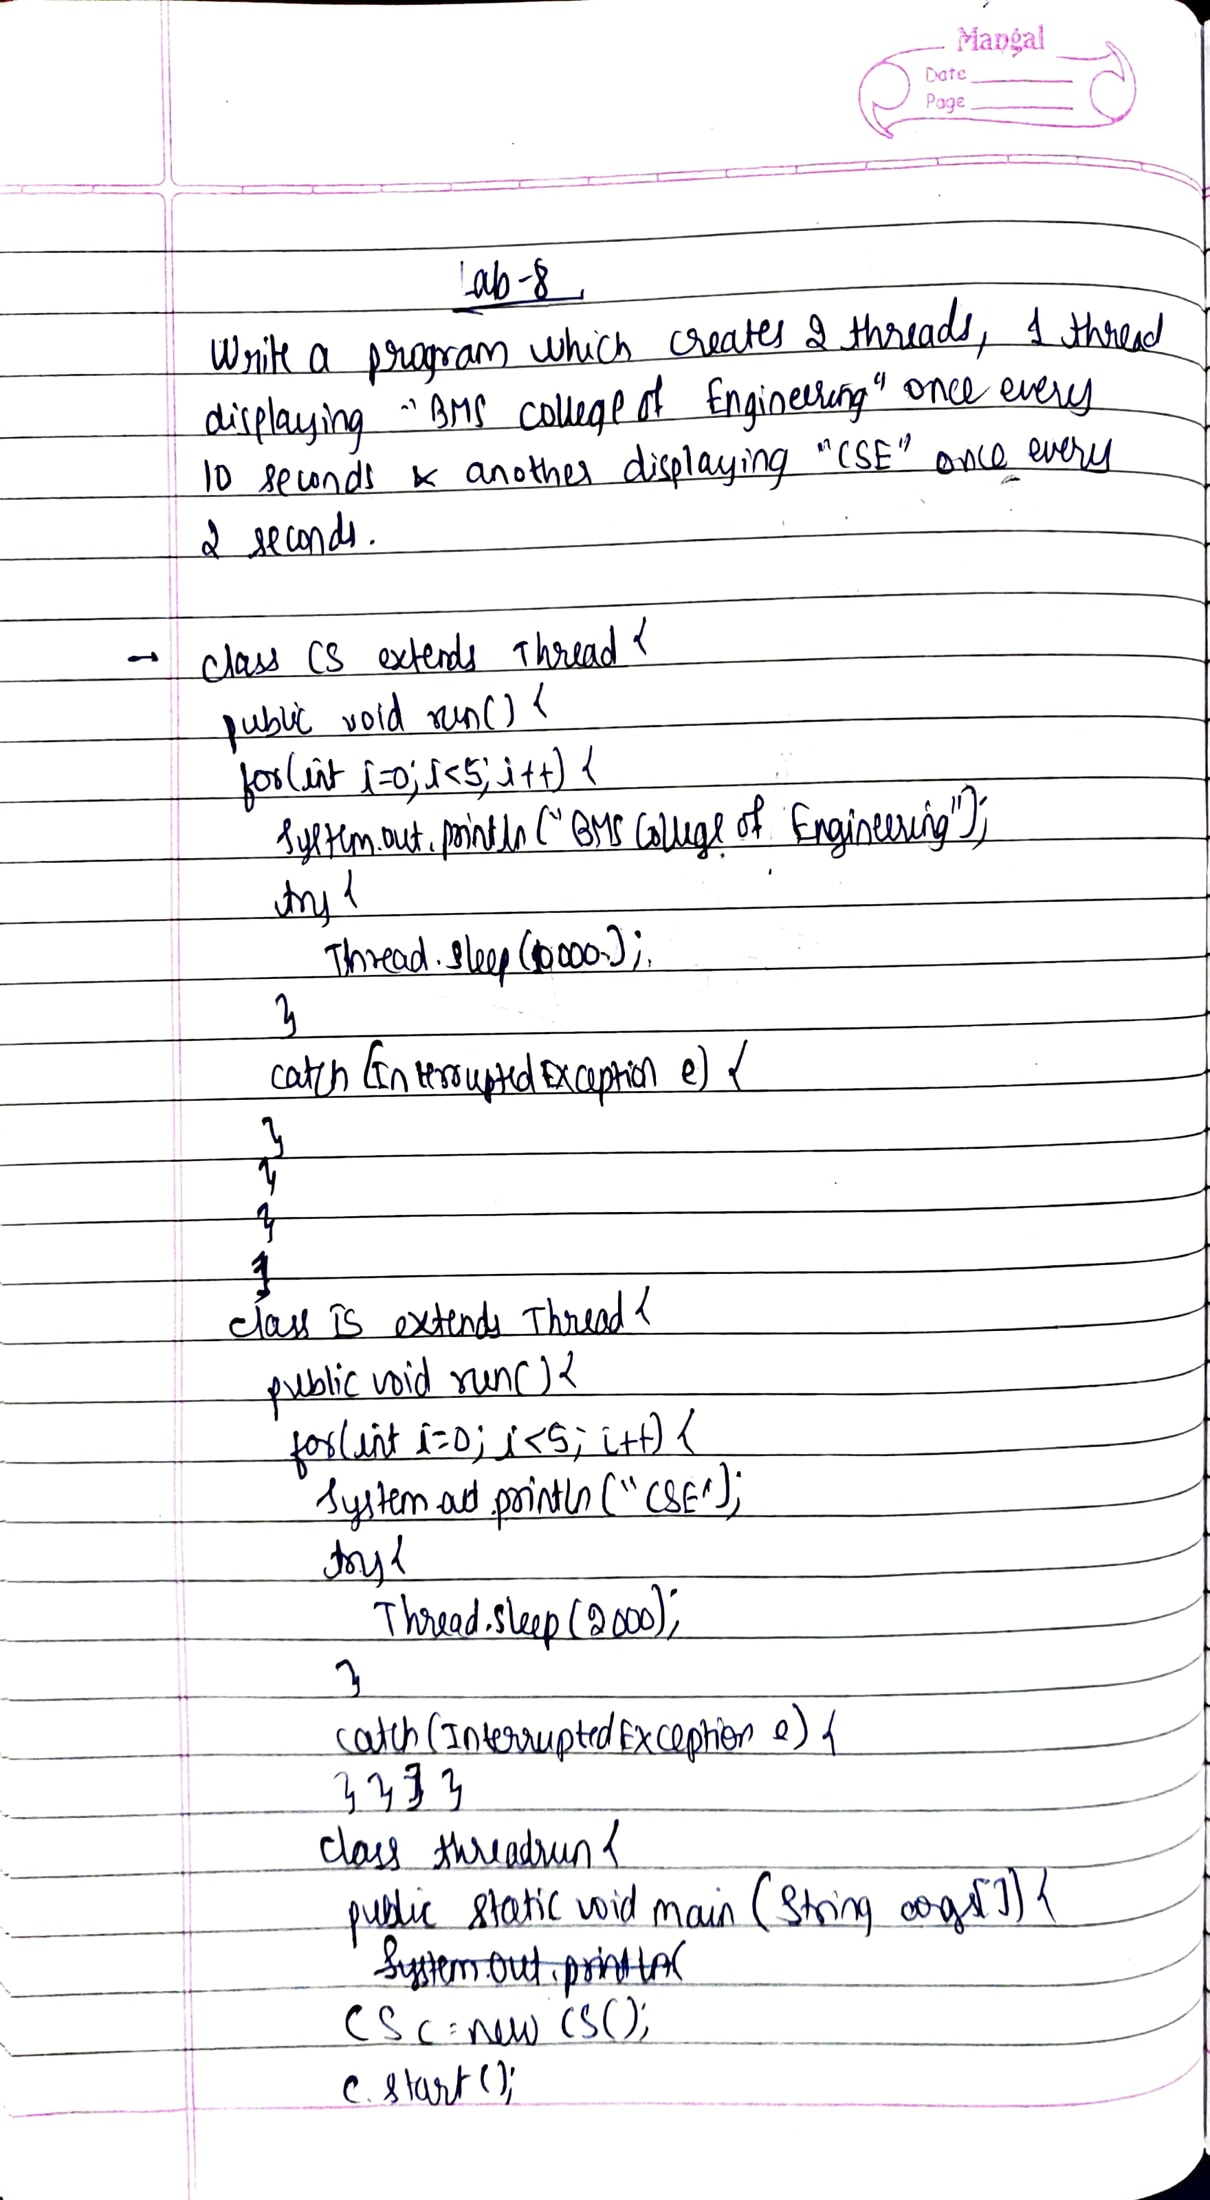 Mangal
Date
Page
Lab-8
Write a program which creates 2 threads, 1 thread
displaying "BMS college of Engineering" once every
10 seconds & another displaying "CSE" once every
2 seconds.
→ class CS extends Thread {
public void run() {
for(int i=0; i<5; i++) {
System.out.println("BMS College of Engineering");
try {
Thread.sleep(10000);
}
catch (InterruptedException e) {
}
}
}
}
class IS extends Thread {
public void run() {
for(int i=0; i<5; i++) {
System.out.println("CSE");
try {
Thread.sleep(2000);
}
catch(InterruptedException e) {
} } } }
class threadrun {
public static void main (String args[]) {
System.out.println(
CS c = new CS();
c.start();